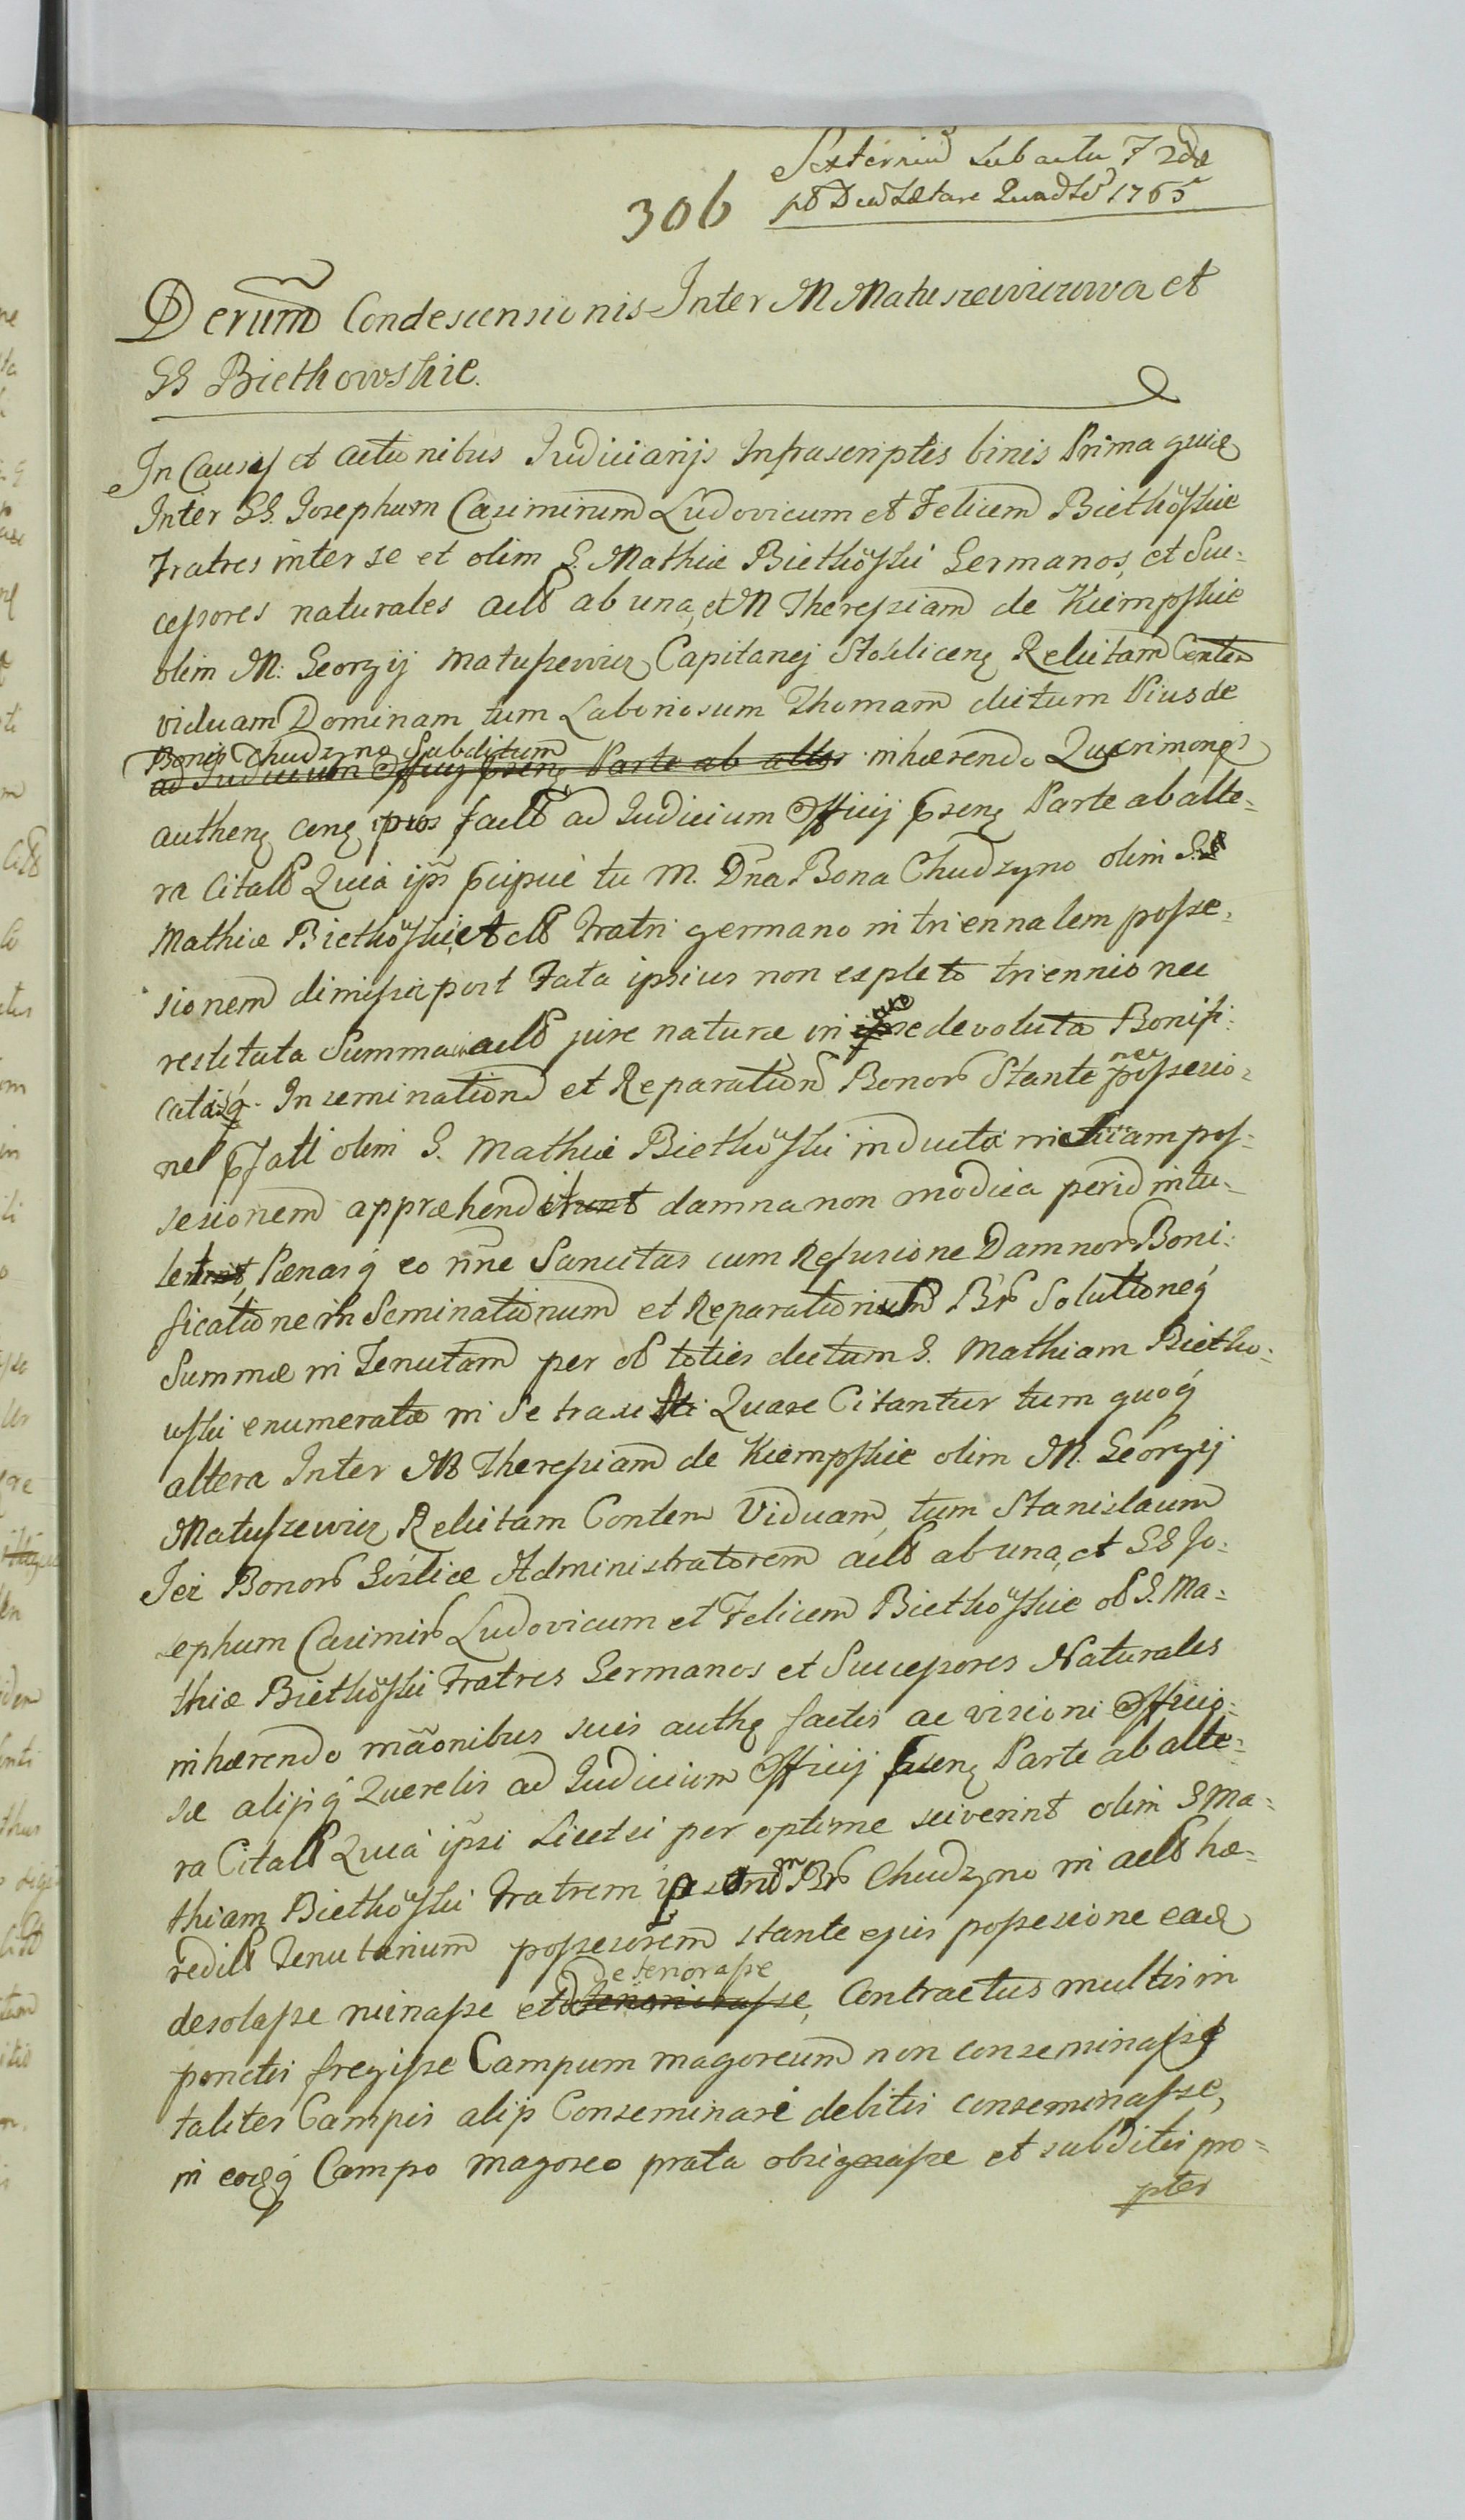 Sexternus sub actu F 2dæ
pt Dcam Lætare Quadles 1765
306
Decretum Condescensionis Inter M Matuszewiczowa et
GG Bietkowskie.
In Causis et Actionibus Judiciarijs Infrascriptis binis Prima quid
Inter GG. Josephum Casimirum Ludovicum et Felicem Bietkowskie
Fratres inter se et olim G. Mathiæ Bietkowski Germanos, et Suc-
cessores naturales act ab una, et M Theressiam de Kiempskie
olim M: Georgij Matuszewicz Capitanej Stokliceng Relictam Conten
viduam Dominam tum Laboriosum Thomam dictum Pius de
Bonis Chudzyno Subditum
ad Judicium Officij pseng Parte ab alter inhærendo Quærimong
autheng ceng ipsos fact ad Judicium Officij pseng Parte ab alte-
ra Citat Quia ipsi pcipue tu M. Dna Bona Chudzyno olim G.
Mathiæ Bietkowski act Fratri germano in triennalem posse-
sionem dimissa post Fata ipsius non expleto triennio nec
restituta Summa act jure naturæ in ipsos devoluta Bonifi-
catasq Inseminationem et Reparationem Bonor Stante nec possessio-
ne pfati olim G. Mathiæ Bietkowski inducta in suam pos-
sesionem appræhendit damna non modica perid intu-
lerint Pænasq eo nne Sancitas cum Refusione Damnor Boni-
ficatione in Seminationum et Reparationum Br Solutioneq
Summæ in Tenutam per ol toties dictum G. Mathiam Bietko-
wski enumeratæ in se traxisti Quare Citantur tum quoq
altera Inter M Theressiam de Kiempskie olim M. Georgij
Matuszewicz Relictam Conten Viduam, tum Stanislaum
Jei Bonor Goslice Administratorem act ab una, et GG Jo-
sephum Casimir Ludovicum et Felicem Bietkowskie ol G. Ma-
thiæ Bietkowski Fratres Germanos et Successores Naturales
inhærendo mãonibus suis authg factis ac visioni Officio-
sæ alijsq Querelis ad Judicium Officij pseng Parte ab alte-
ra Citat Quia ipsi Licet si per optime sciverint olim G Ma-
thiam Bietkowski Fratrem ipsorum Br Chudzyno in act hæ-
redit Tenutarium possesorem stante ejus possesione ead
deteriorasse
desolasse ruinasse et deteriorisasse, Contractus multis in
punctis fregisse Campum magoreum non conseminasse
taliter Campis alijs Conseminari debitis conseminasse,
in eodq Campo magoreo prata obsignasse et subditis pro-
pter